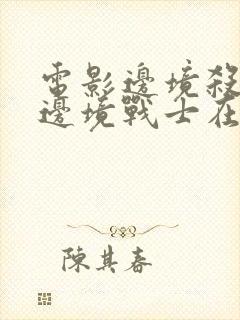 電影邊境殺
邊境戰士在
陳其春